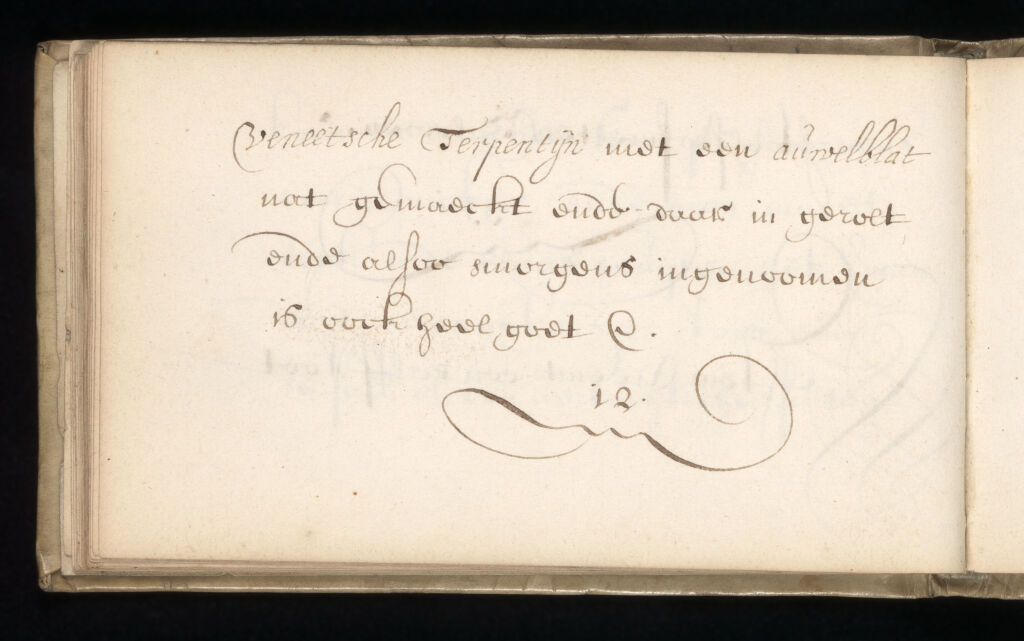 Veneetsche Terpentÿn met een aúwelblat
nat gemaeckt ende daar in gerolt
ende alsoo smorgens ingenoomen
is oock heel goet
12.